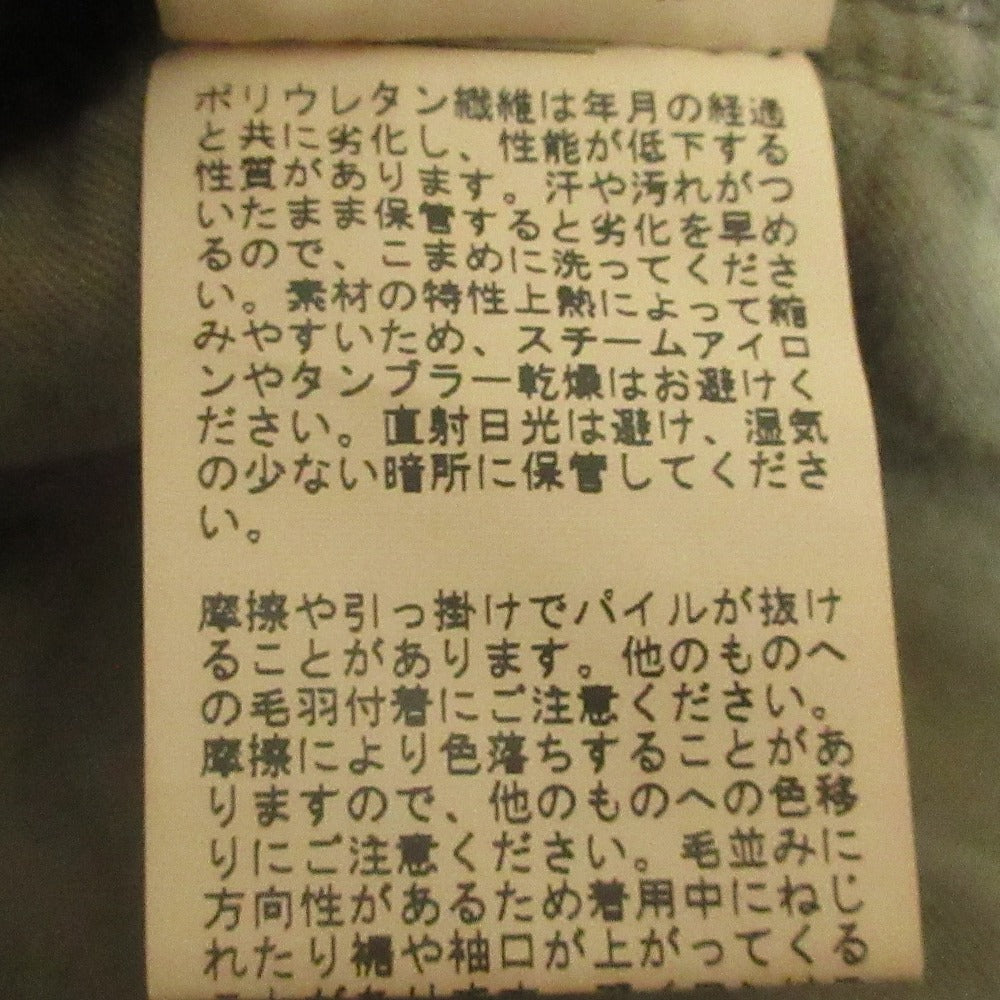 ポリウレタン繊維は年月の経過
と共に劣化し、性能が低下する
性質があります。汗や汚れがつ
いたまま保管すると劣化を早め
るので、こまめに洗ってくださ
い。素材の特性上熱によって縮
みやすいため、スチームアイロ
ンやタンブラー乾燥はお避けく
ださい。直射日光は避け、湿気
の少ない暗所に保管してくださ
い。
摩擦や引っ掛けでパイルが抜け
ることがあります。他のものへ
の毛羽付着にご注意ください。
摩擦により色落ちすることがあ
りますので、他のものへの色移
りにご注意ください。毛並みに
方向性があるため着用中にねじ
れたり裾や袖口が上がってくる